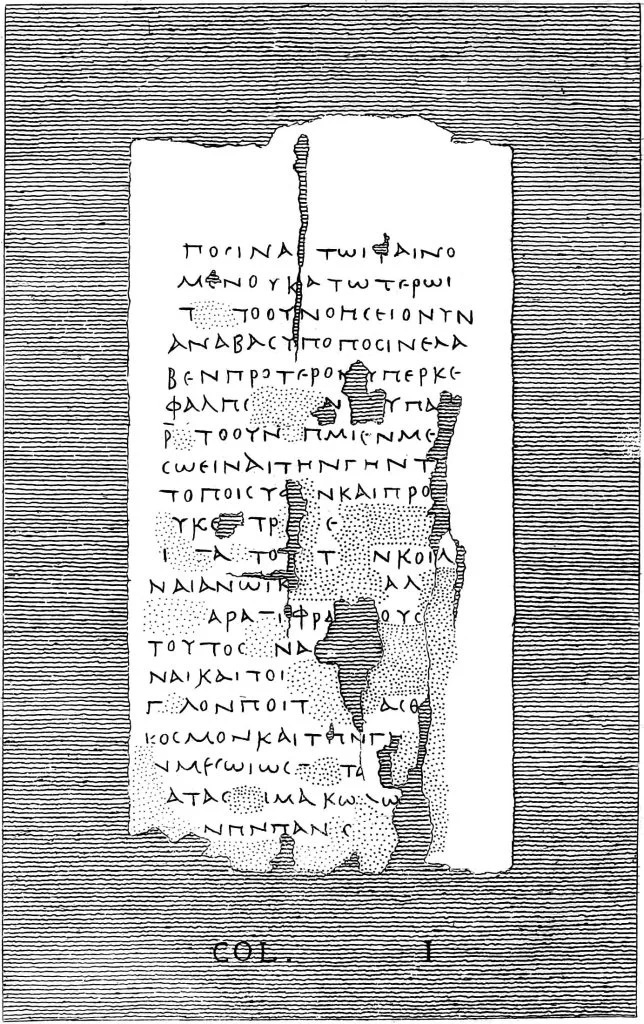 ΠΟΣΙΝΑ ΤΩΙ ΦΑΙΝΟ
ΜΕΝΟΥΚΑΤΩΤΕΡΩΙ
Τ ΠΟΟΥΝΟΗΣΕΙΟΝΥΝ
ΑΝΑΒΑΣΥΠΟΠΟΣΙΝΕΛΑ
ΒΕΝΠΡΟΤΕΡΟΝΥΠΕΡΚΕ
ΦΑΛΠΣ ΑΝ ΥΠΑ
Ρ ΤΟΟΥΝ ΠΜΙΕΝΜΕ
ΣΩΕΙΝΑΙΤΗΝΓΗΝΤ
ΤΟΠΟΙΣΥΣ ΝΚΑΙΠΡΟ
ΥΚΕ ΤΡ Ε
Ι ΤΑ ΤΟ Τ ΝΚΟΙΛ
ΝΑΙΑΝΩΙΚ ΑΛ
ΑΡΑ ΤΙΦΡΑ ΟΥΣ
ΤΟΥΤΟΣ ΝΑ
ΝΑΙΚΑΙΤΟΙ
Γ ΛΟΝΠΟΙΤ ΑΣΘ
ΚΟΣΜΟΝΚΑΙΤΗΝΓΗ
ΝΜΕΣΩΙΩΣ ΤΑ
ΑΤΑΣ ΙΜΑΚΩΛΩ
ΝΠΝΠΑΝ Σ
COL. I